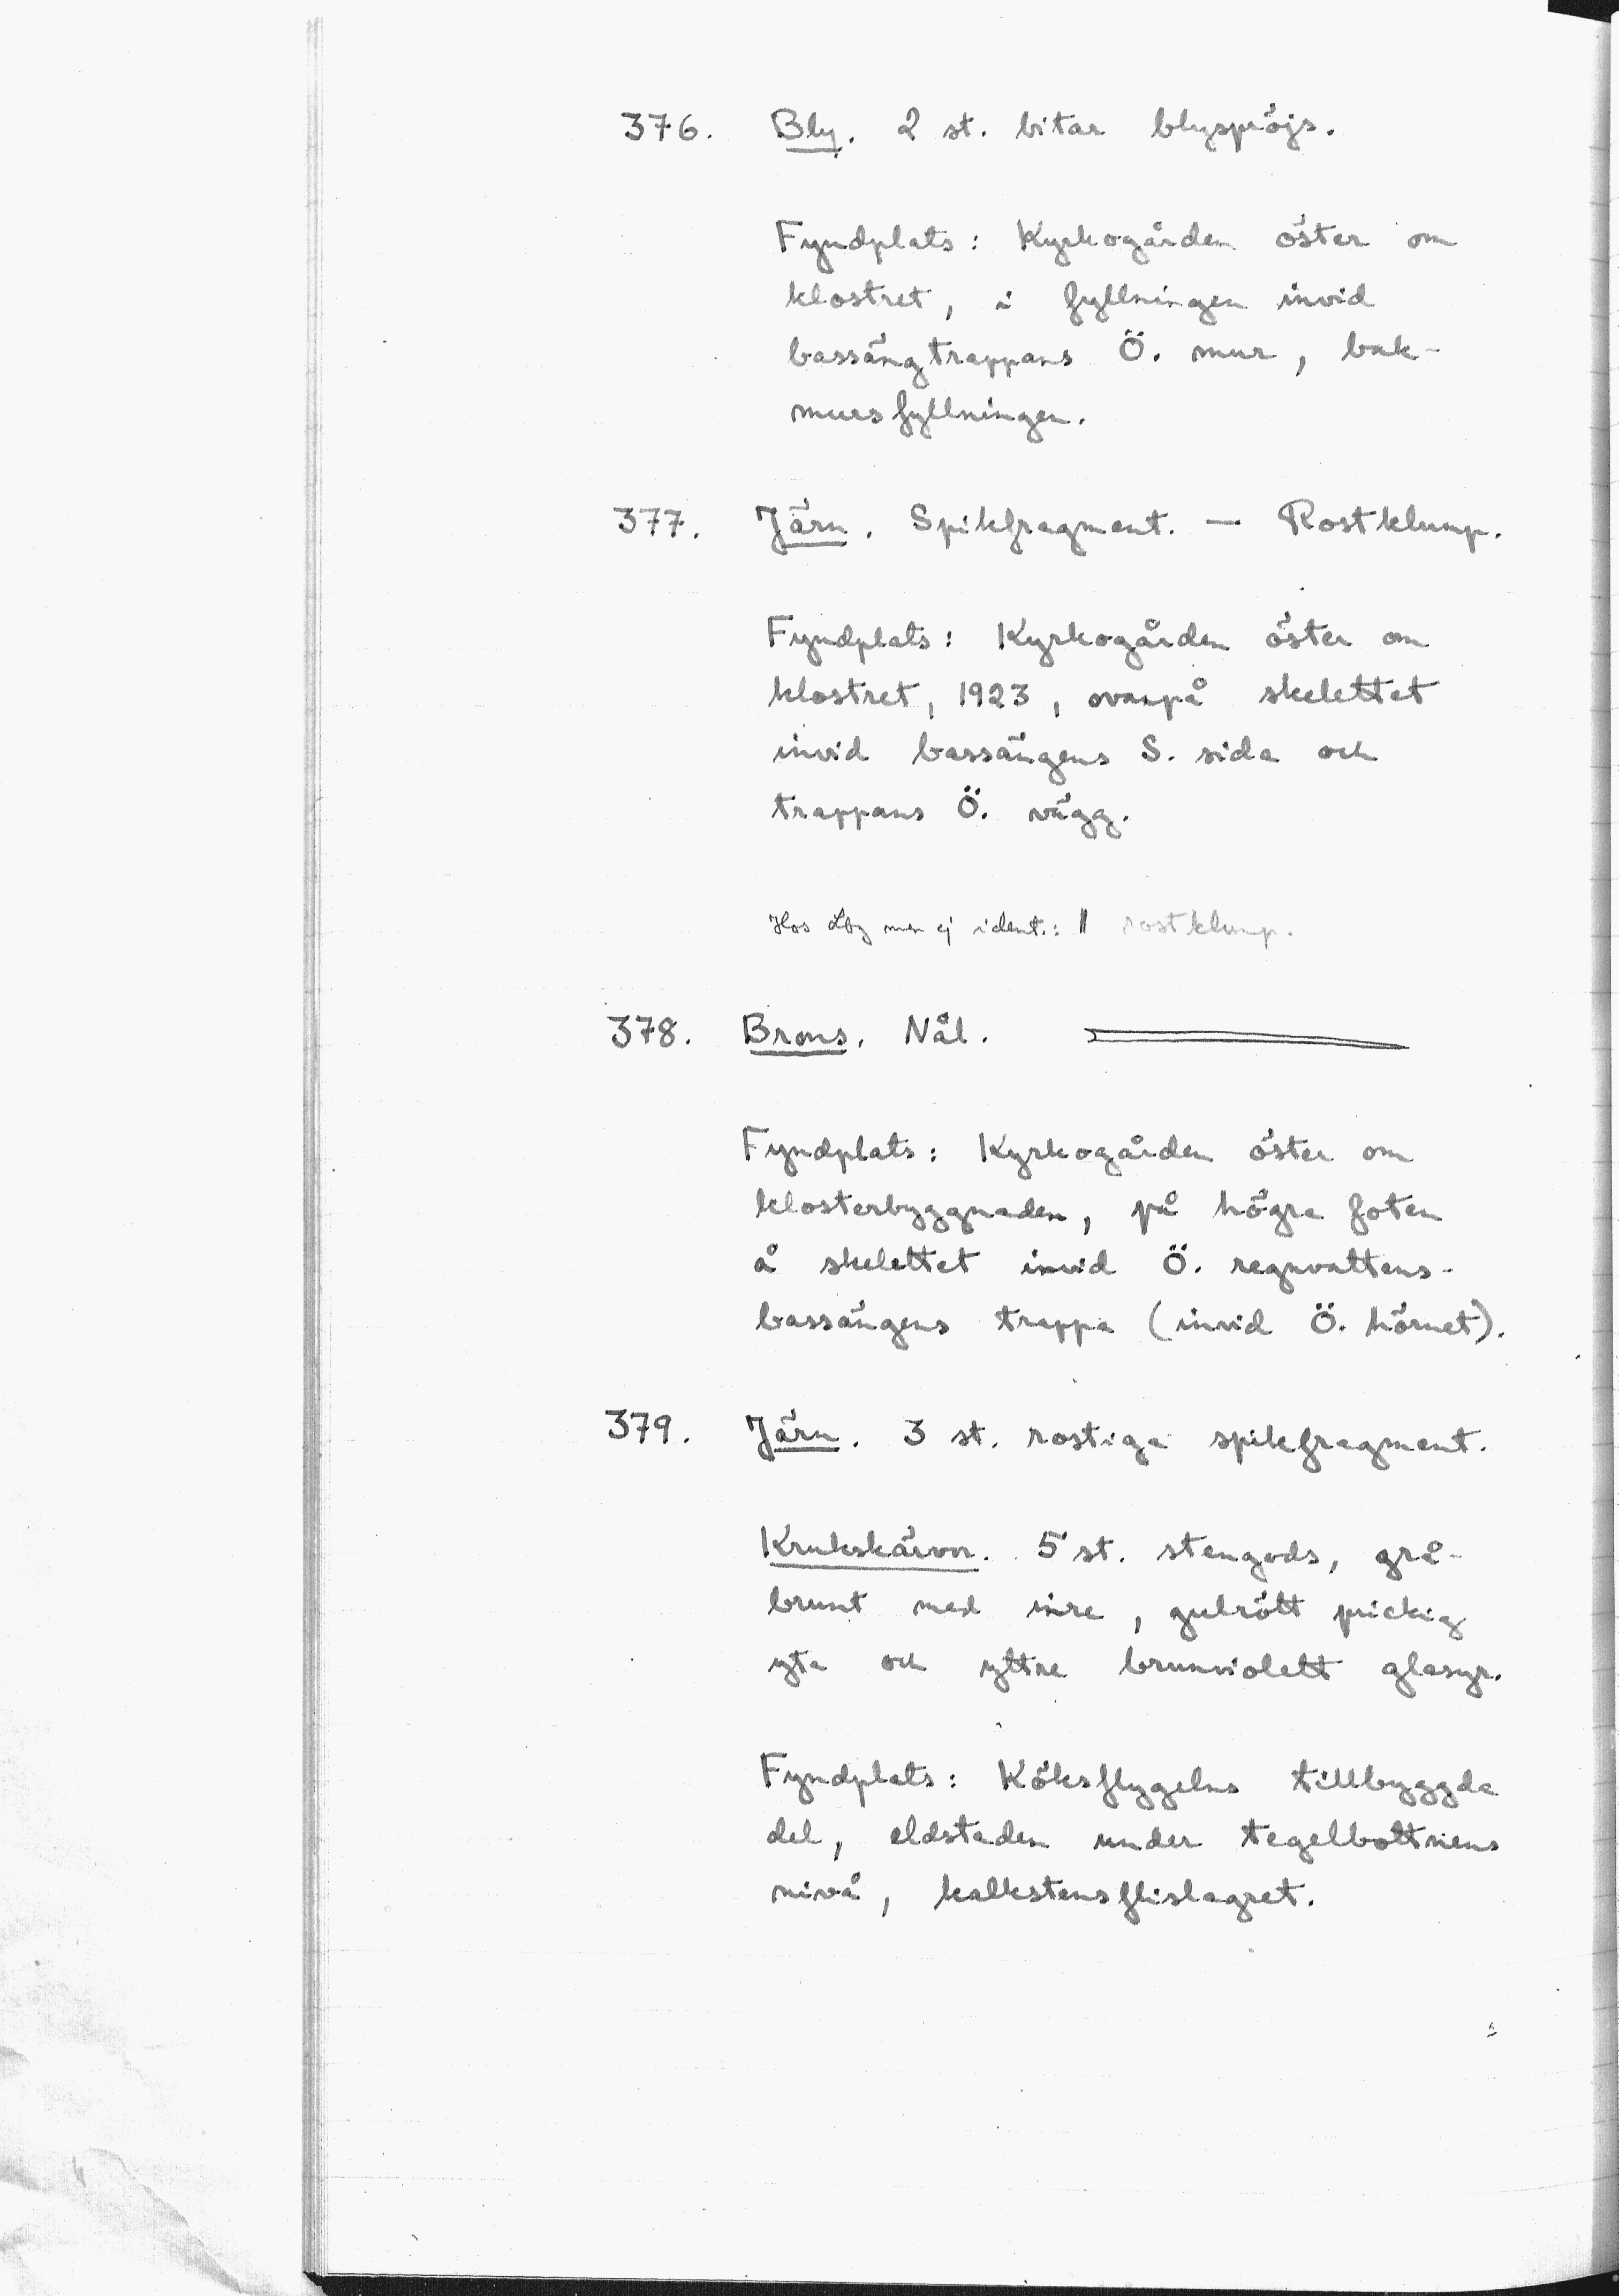 376. Bly. 2 st. bitar blyspröjs.
Fyndplats: Kyrkogården öster om
klostret, i fyllningen invid
bassängtrappans Ö. mur, bak-
mursfyllningen.
377. Järn. Spikfragment. — Rostklump.
Fyndplats: Kyrkogården öster om
klostret, 1923, ovanpå skelettet
invid bassängens S. sida och
trappans Ö. vägg.
Hos Lbg men ej ident.: rostklump.
378. Brons. Nål.
Fyndplats: Kyrkogården öster om
klosterbyggnaden, på högra foten
å skelettet invid Ö. regnvattens-
bassängens trappa (invid Ö. hörnet).
379. Järn. 3 st. rostiga spikfragment.
Krukskärvor. 5 st. stengods, grå-
brunt med inre, gulrött prickig
yta och yttre brunviolett glasyr.
Fyndplats: Köksflygelns tillbyggda
del, eldstaden under tegelbottnens
nivå, kalkstensflislagret.